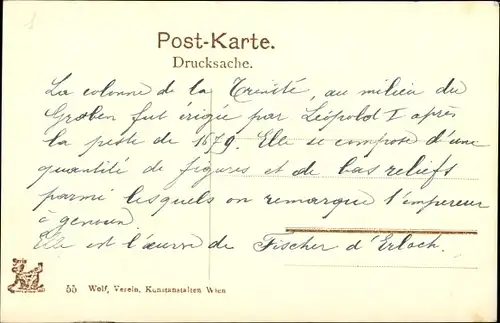 Post-Karte.
Drucksache.
La colonne de la Trinité, au milieu du
Graben fut érigée par Léopold I après
la peste de 1679. Elle se compose d'une
quantité de figures et de bas reliefs
parmi lesquels on remarque l'empereur
à genoux.
Elle est l'œuvre de Fischer d'Erlach.
55 Wolf, Verein. Kunstanstalten Wien